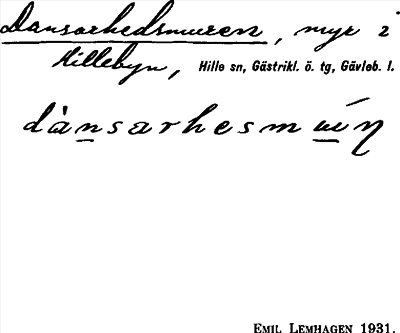 Dansarhedsmuren, myr i
Hillebyn, Hille sn, Gästrikl. ö. tg, Gävleb. l.
dànsarhesmúiŋ
EMIL LEMHAGEN 1931.